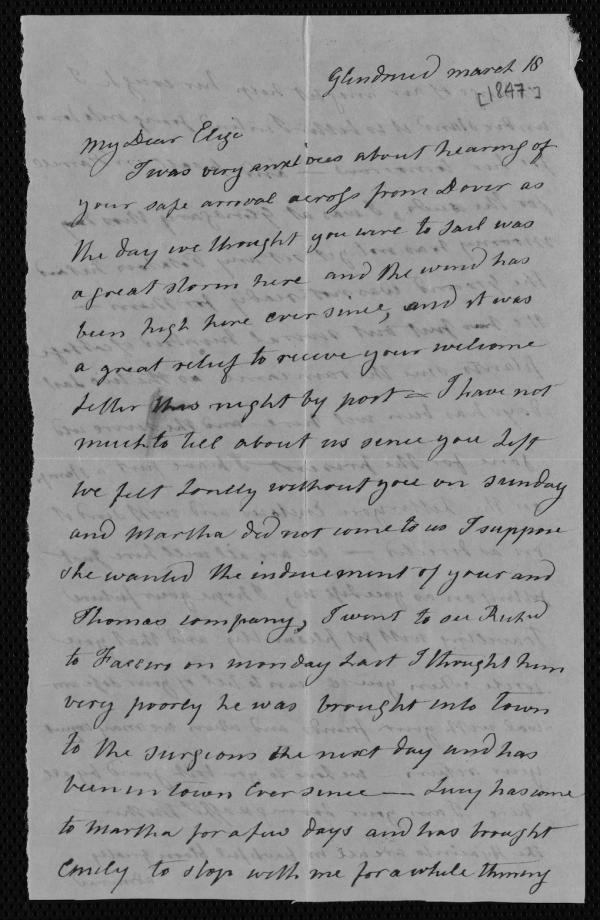 Glindrued march 18
[1847]
My Dear Eliza
I was very anxious about hearing of
your safe arrival across from Dover as
the day we thought you wire to sail was
a great storm here and the wind has
been high here ever since, and it was
a great relief to receive your welcome
letter this night by post — I have not
much to tell about us since you left
we felt lonely without you on sunday
and Martha did not come to us I suppose
she wanted the inducement of your and
Thomas company, I went to see Richd
to on monday last I thought him
very poorly he was brought into town
to the surgions the next day and has
been in town ever since — Lucy has come
to Martha for a few days and has brought
Emily to stop with me for a while